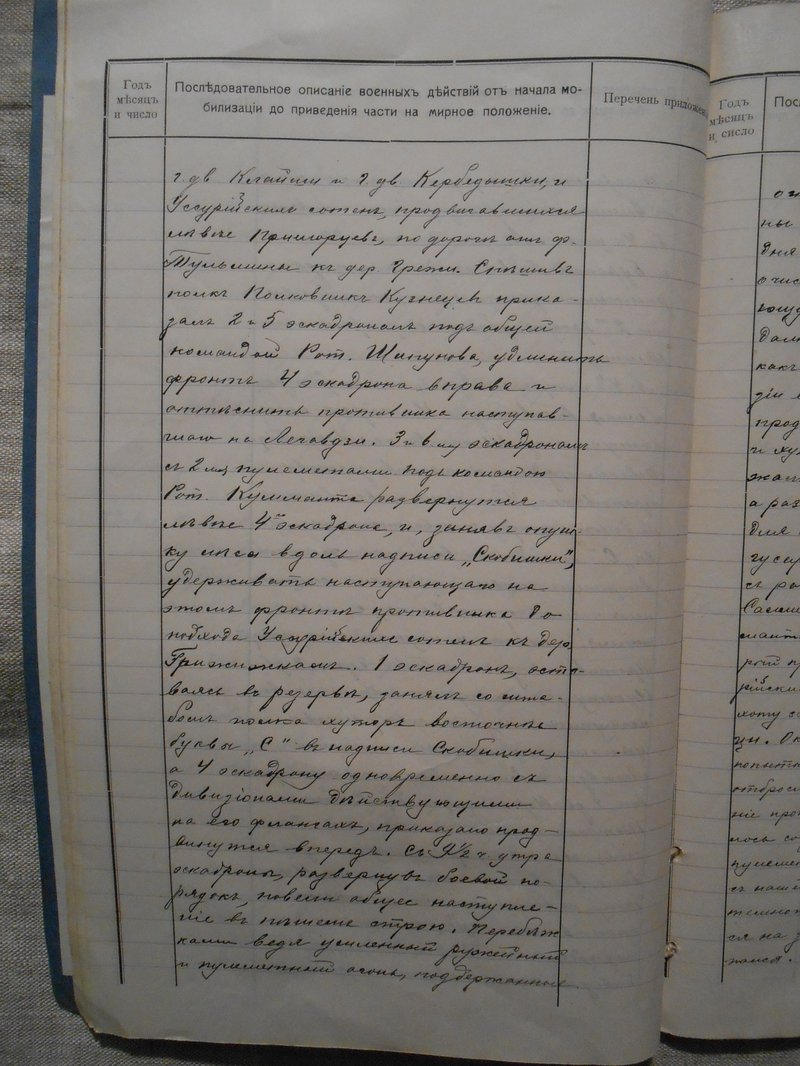 Годъ
мѣсяцъ
и число
Послѣдовательное описаніе военныхъ дѣйствій отъ начала мо-
билизаціи до приведенія части на мирное положеніе.
Перечень приложен
г. дв и г. дв Кербедышки, и
Уссурійскимъ сотенъ, продвигавшихся
лѣвѣе Приморцевъ, по дорогѣ отъ ф.
къ дер. Грежи. Спѣшивъ
полкъ Полковникъ Кузнецовъ прика-
залъ 2 и 5 эскадронамъ подъ общей
командой Рот. Шипунова, удлинить
фронтъ 4 эскадрона вправо и
оттѣснить противника наступав-
шаго на 3 и 6 му эскадронамъ
съ 2 мя пулеметами подъ командою
Рот. развернутся
лѣвѣе 4го эскадрона, и, занявъ опуш-
ку лѣса вдоль надписи „Скобишки",
удерживать наступающаго на
этомъ фронтѣ противника до
подхода Уссурійскихъ сотенъ къ дер.
1 эскадронъ, оста-
ваясь въ резервѣ, занялъ со шта-
бомъ полка хуторъ восточнѣе
буквы „С" въ надписи Скобишки,
а 4 эскадрону одновременно съ
дивизіонами дѣйствующими
на его флангахъ, приказано прод-
винутся впередъ. Съ ч утра
эскадроны, развернувъ боевой по-
рядокъ, повели общее наступле-
ніе въ пѣшемъ строю. Перебѣж-
ками ведя усиленный ружейный
и пулеметный огонь, поддержанные
Годъ
мѣсяцъ
и число
Посл
ны
дня
очис
дал
какъ
діи
прод
и ху
а раз
для
гусар
съ ро
рой п
рійски
хоту с
ци. Ок
попытк
отброс
ніе про
лось со
пулемет
съ наш
темнот
ся на з